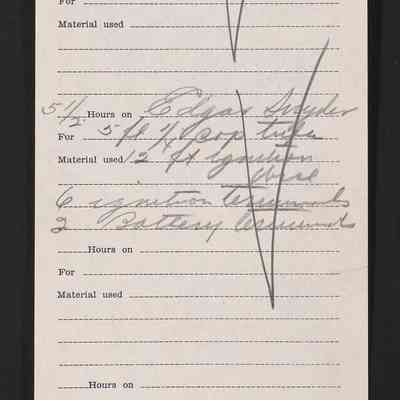 For
Material used
5 1/2 Hours on Edgar Snyder
For 5 ft 1/4 cop tube
Material used 12 ft ignition
Wire
6 ignition terminals
2 Battery terminals
Hours on
For
Material used
Hours on